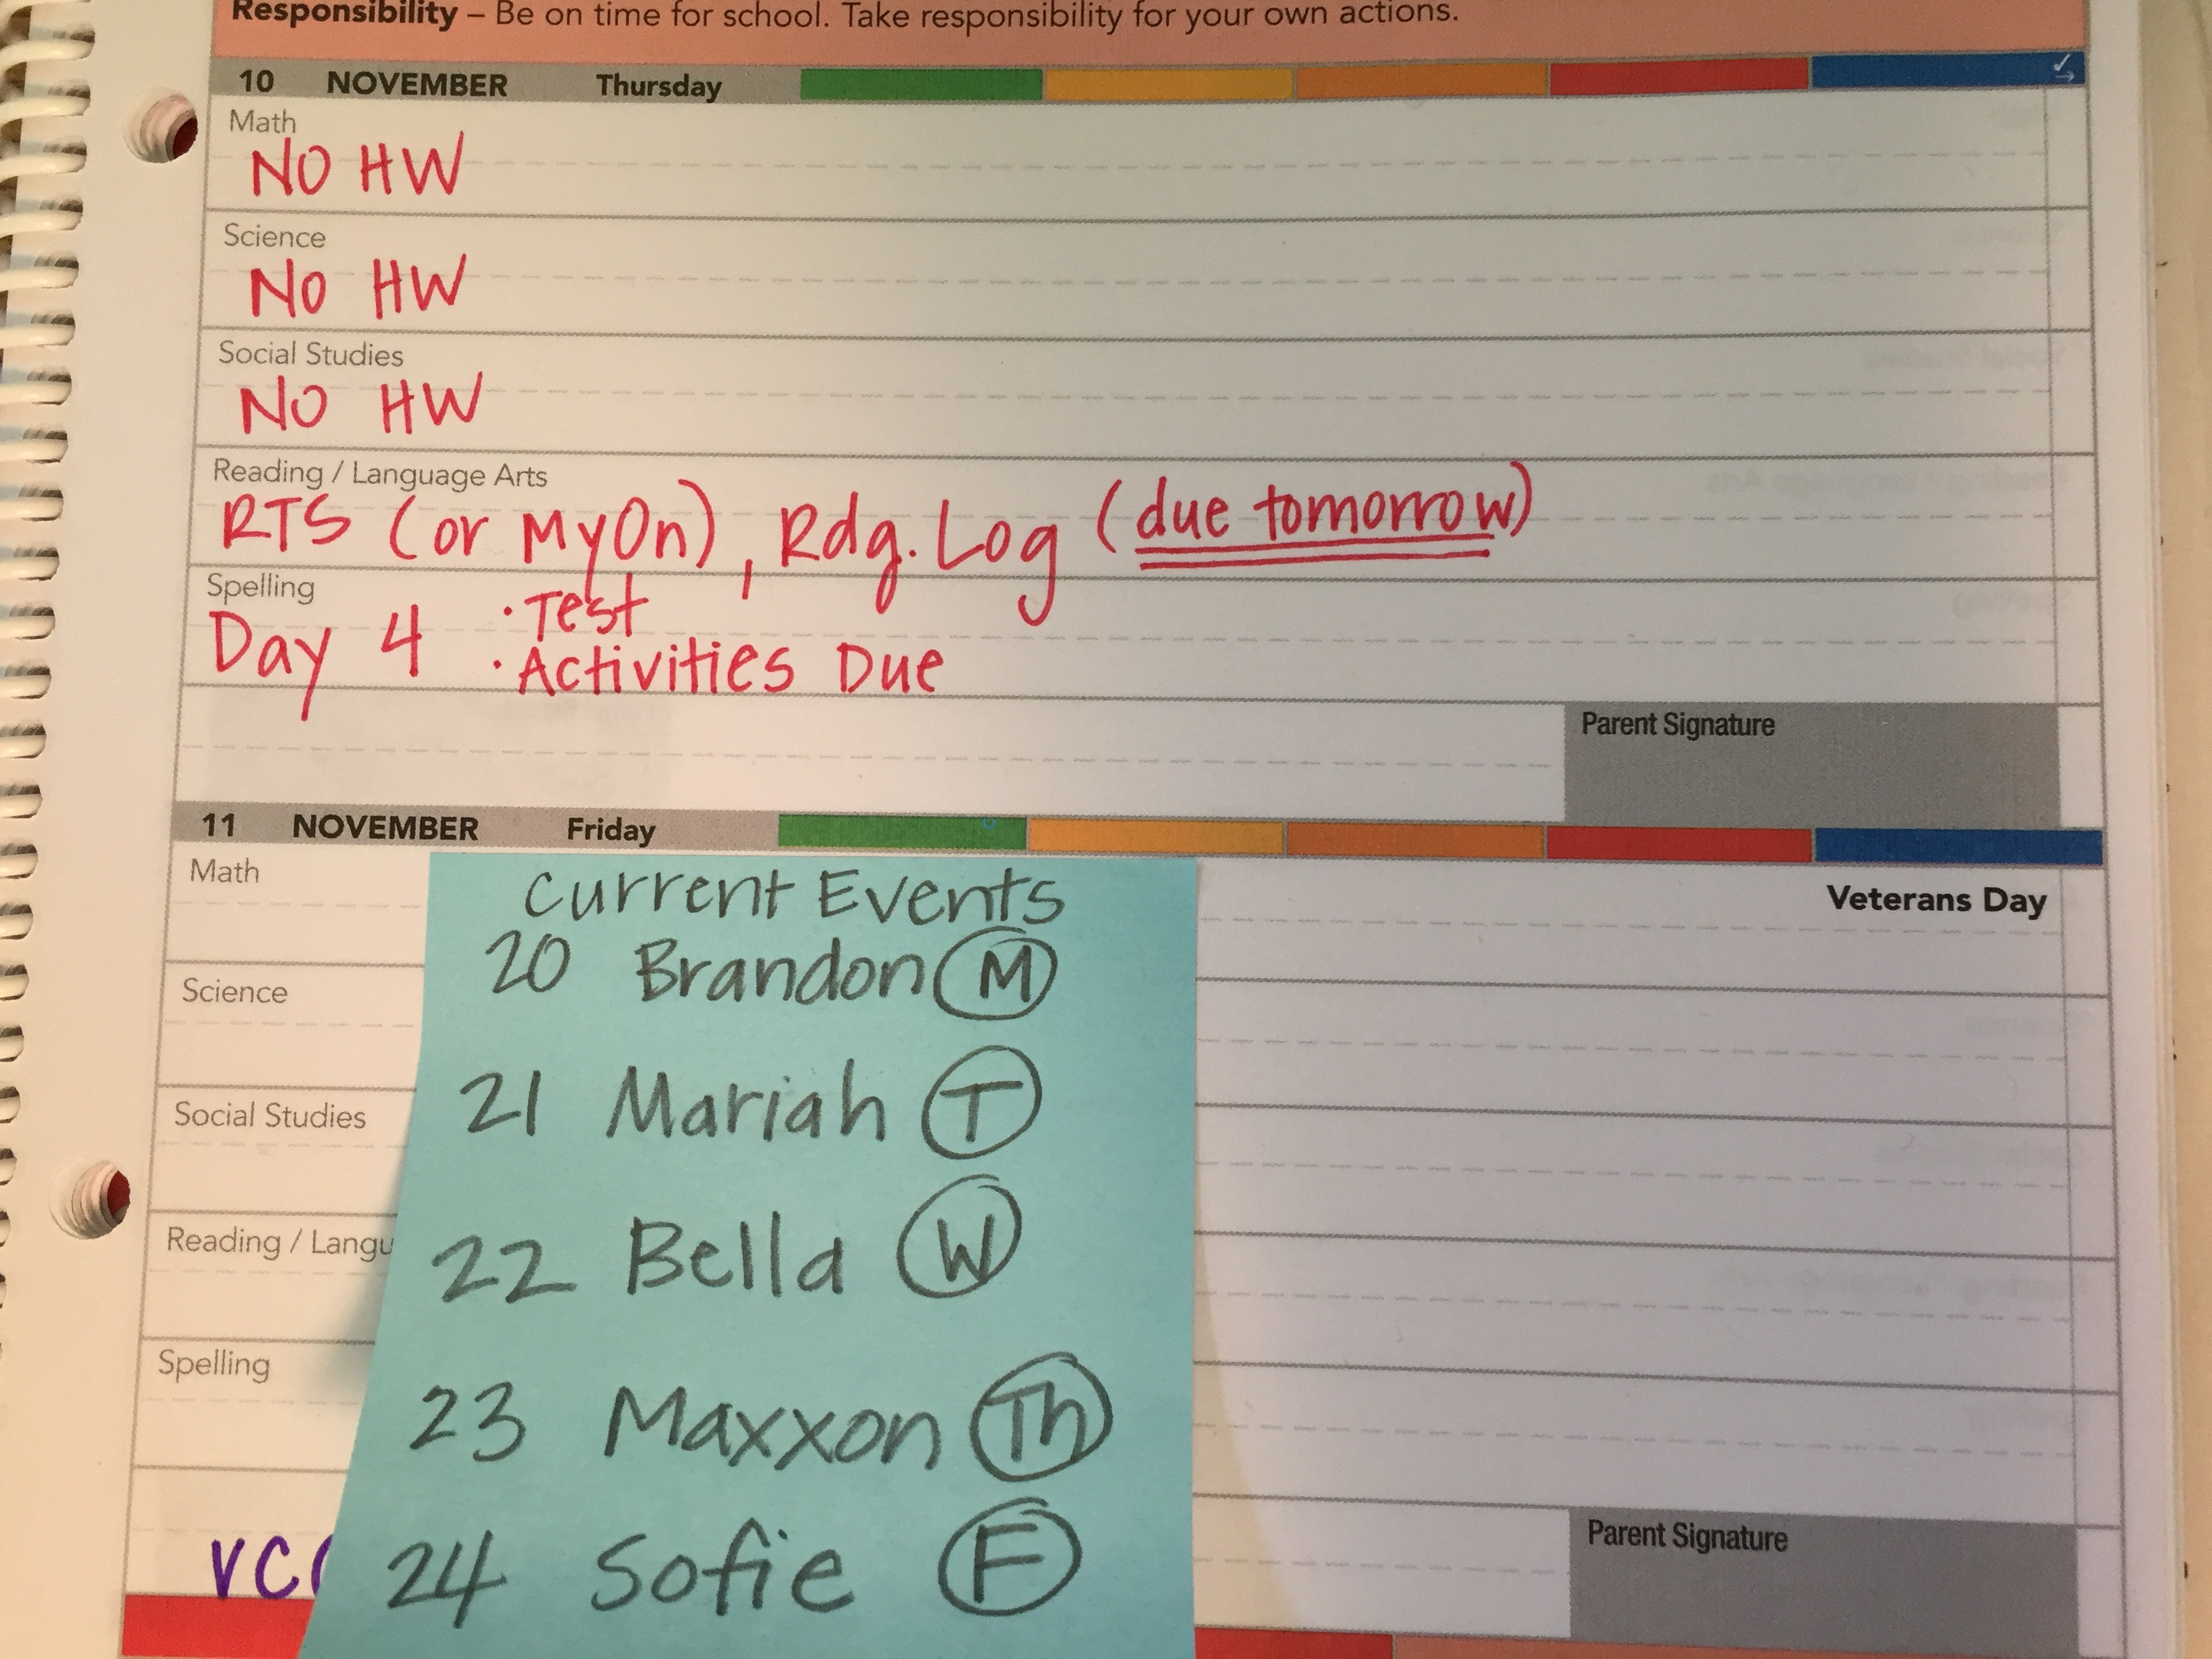 Responsibility – Be on time for school. Take responsibility for your own actions.
10 NOVEMBER Thursday
Math
NO HW
Science
NO HW
Social Studies
NO HW
Reading / Language Arts
RTS (or MyOn), Rdg. Log (due tomorrow)
Spelling
Day 4 · Test
· Activities Due
Parent Signature
11 NOVEMBER Friday
Math
Veterans Day
Science
Social Studies
Reading / Langu
Spelling
Parent Signature
Current Events
20 Brandon M
21 Mariah T
22 Bella W
23 Maxxon Th
24 Sofie F